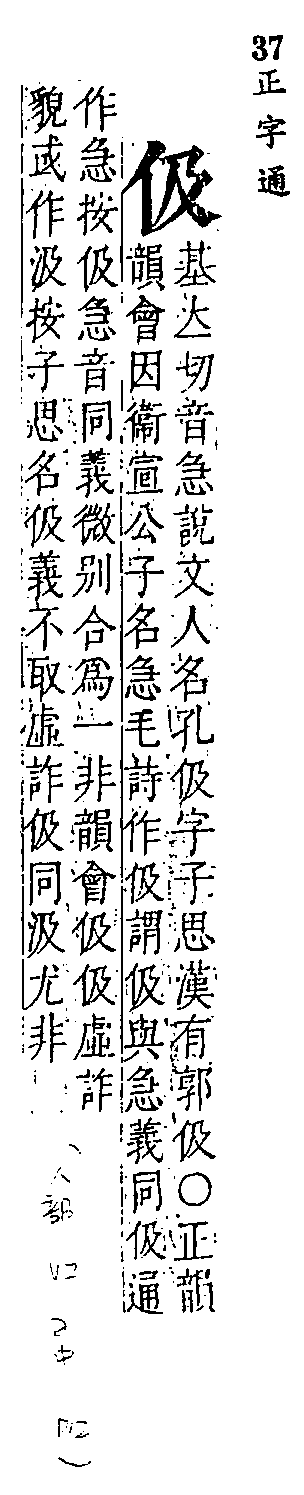 37正字通
伋
基立切音急說文人名孔伋字子思漢有郭伋○正韻
韻會因衞宣公子名急毛詩作伋謂伋與急義同伋通
作急按伋急音同義微別合爲一非韻會伋伋虛詐
貌或作汲按子思名伋義不取虛詐伋同汲尤非